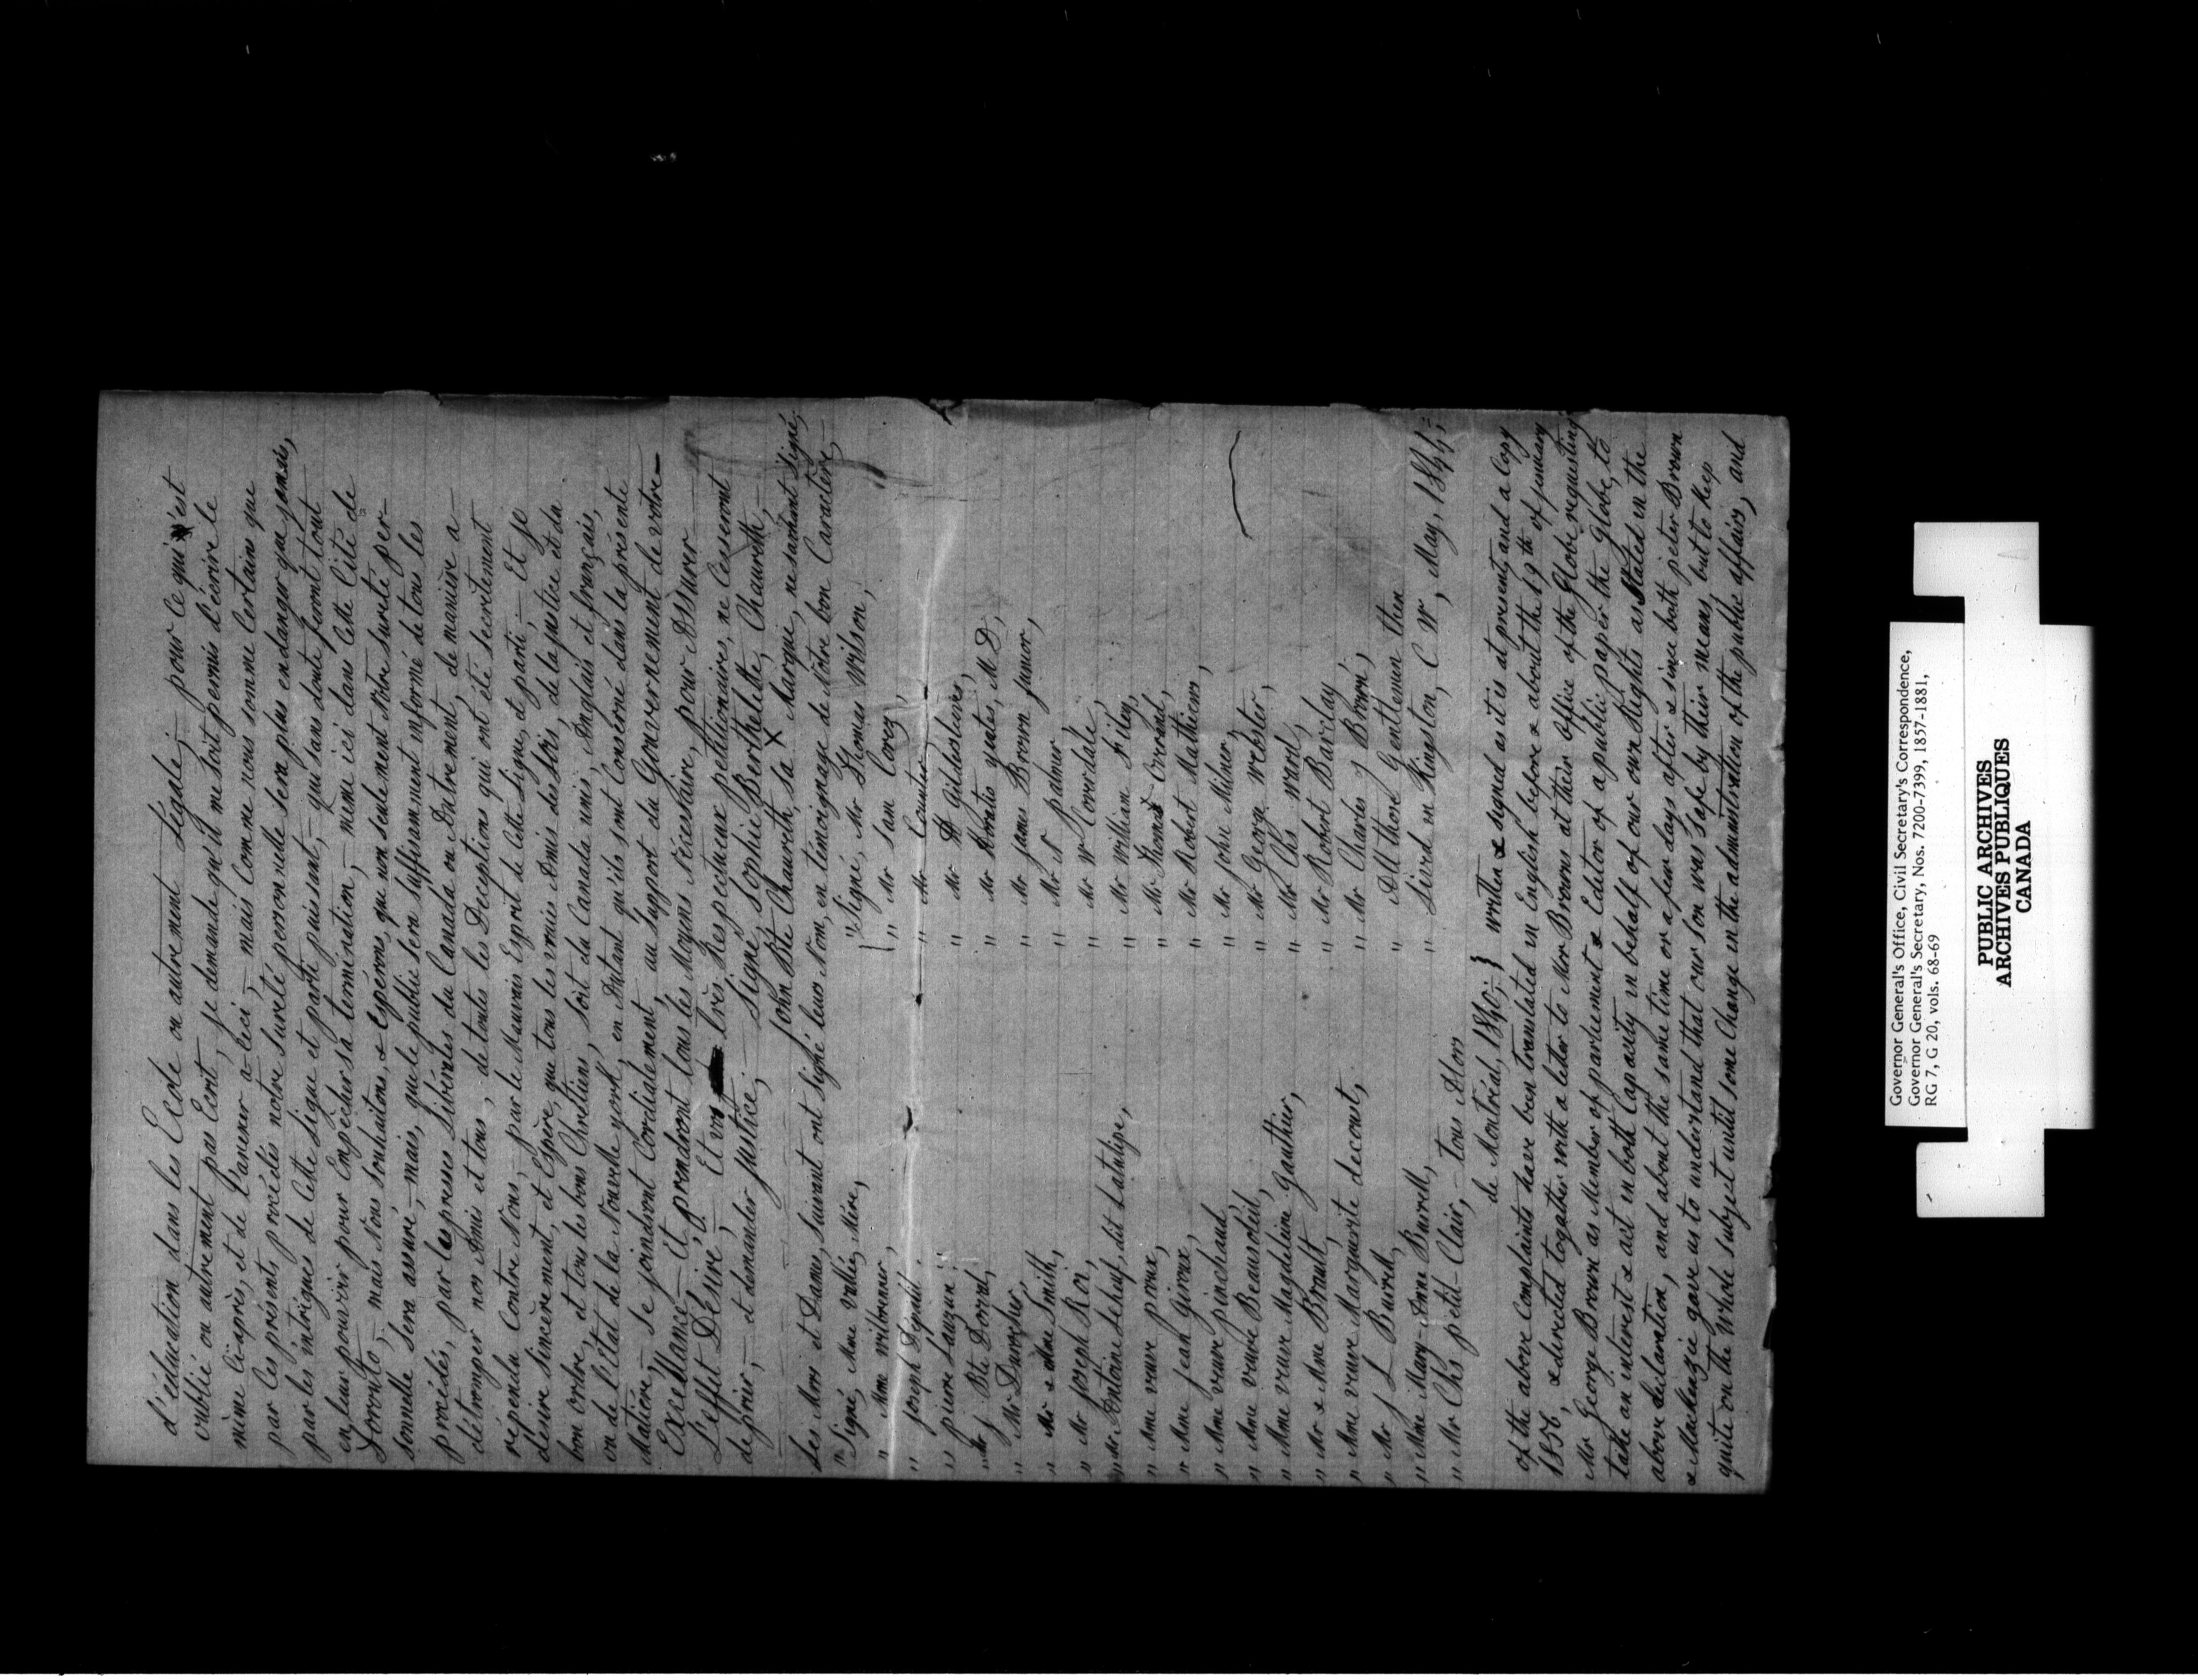 d'éducation dans les Ecole ou autrement légale; pour ce qui est
oublié ou autrement pas Ecrit, je demande qu'il me soit permis d'écrire le
même ci-après, et de l'avenir a ceci, mais comme nous somme certains que
par les présents procédés notre sureté personnelle sera plus en danger que jamais,
par les intrigues de cette ligue et parti puissant, qui sans doute feront tout
en leur pouvoir pour Empêcher sa termination, même ici dans cette Cité de
Toronto, mais Nous souhaitons, & Esperons, que non seulement Notre sureté per-
sonnelle sera assuré, mais, que le public sera suffisamment informé de tous les
procédés, par les presses libérales du Canada ou Autrement, de manière a
détromper nos Amis et tous, de toutes les Deceptions qui ont été secrètement
répendu Contre Nous, par le Mauvais Esprit de Cette ligue, et parti; Et je
desire sincèrement, et Espère, que tous les vraies Amis des lois, de la justice et du
bon ordre, et tous les bons Chretiens, soit du Canada unis, Anglais et français,
ou de l'Etat de la Nouvelle york, en Autant qu'ils sont Consérné dans la présente
Matière, se joindront Cordialement au support du Gouvernement de votre
Excellance, Et prendront tous les Moyens Nécessaire, pour Assurer
L'effet Désiré; Et vos très Respectueux petitionaires, ne Cesseront
de prier, et demander justice; Signé, Sophie Berthelette, Chaurette,
John Bte Chaurette, sa X Marque, ne sachant Signé,
Les Mrs et Dames, suivant ont signé leurs Nom, en témoignage de Notre bon Caractère,
" Signé, Mme Vallée, Mère,
" Mme Wilbrenner,
" Joseph
" pierre Lauzun,
" Mr J Bte Dorval,
" Mr Durocher,
" Mr & Mme Smith,
" Mr Joseph Roi,
" Mr Antoine Lebeuf, dit Latulipe,
" Mme veuve proux,
" Mme jean Giroux,
" Mme veuve pinchaud,
" Mme veuve Beausoleil,
" Mme veuve Magdeline Gauthier,
" Mr & Mme Brault,
" Mme veuve Marguerite decoust,
" Mr J L Burrell,
" Mme Mary-Anne Burrell,
" Mr Chs petit-Clair, tous Alors
de Montréal, 1840;
" Signé, Mr Thomas Wilson,
" Mr Sam Corey,
" Mr Counter,
" Mr A Gildersleaves,
" Mr Horatio yeates, M D,
" Mr James Brown junior,
" Mr S palmer,
" Mr W Coverdale,
" Mr William Filey,
" Mr Thomas Overend,
" Mr Robert Mathieus,
" Mr John Milner,
" Mr George Webster,
" Mr Chs Ward,
" Mr Robert Barclay,
" Mr Charles J Brown,
" All those Gentlemen then
" Lived in Kingston, C. W, May, 1844;
written & signed as it is at present, and a Copy
of the above Complaints have been translated in English before & about the 19th of january
1856, & directed togather with a letter to Mr Browns at their Office of the Globe requesting
Mr George Brown as Member of parliement & Editor of a public paper the Globe, to
take an interest & act in both Capacity in behalf of our own Rights as Stated in the
above declaration, and about the same time or a few days after & since both peter Brown
& Mackenzie gave us to understand that our son was safe by their means, but to keep
quite on the whole subject until some Change in the administration of the public affairs, and
Governor General's Office, Civil Secretary's Correspondence,
Governor General's Secretary, Nos. 7200-7399, 1857-1881,
RG 7, G 20, vols. 68-69
PUBLIC ARCHIVES
ARCHIVES PUBLIQUES
CANADA